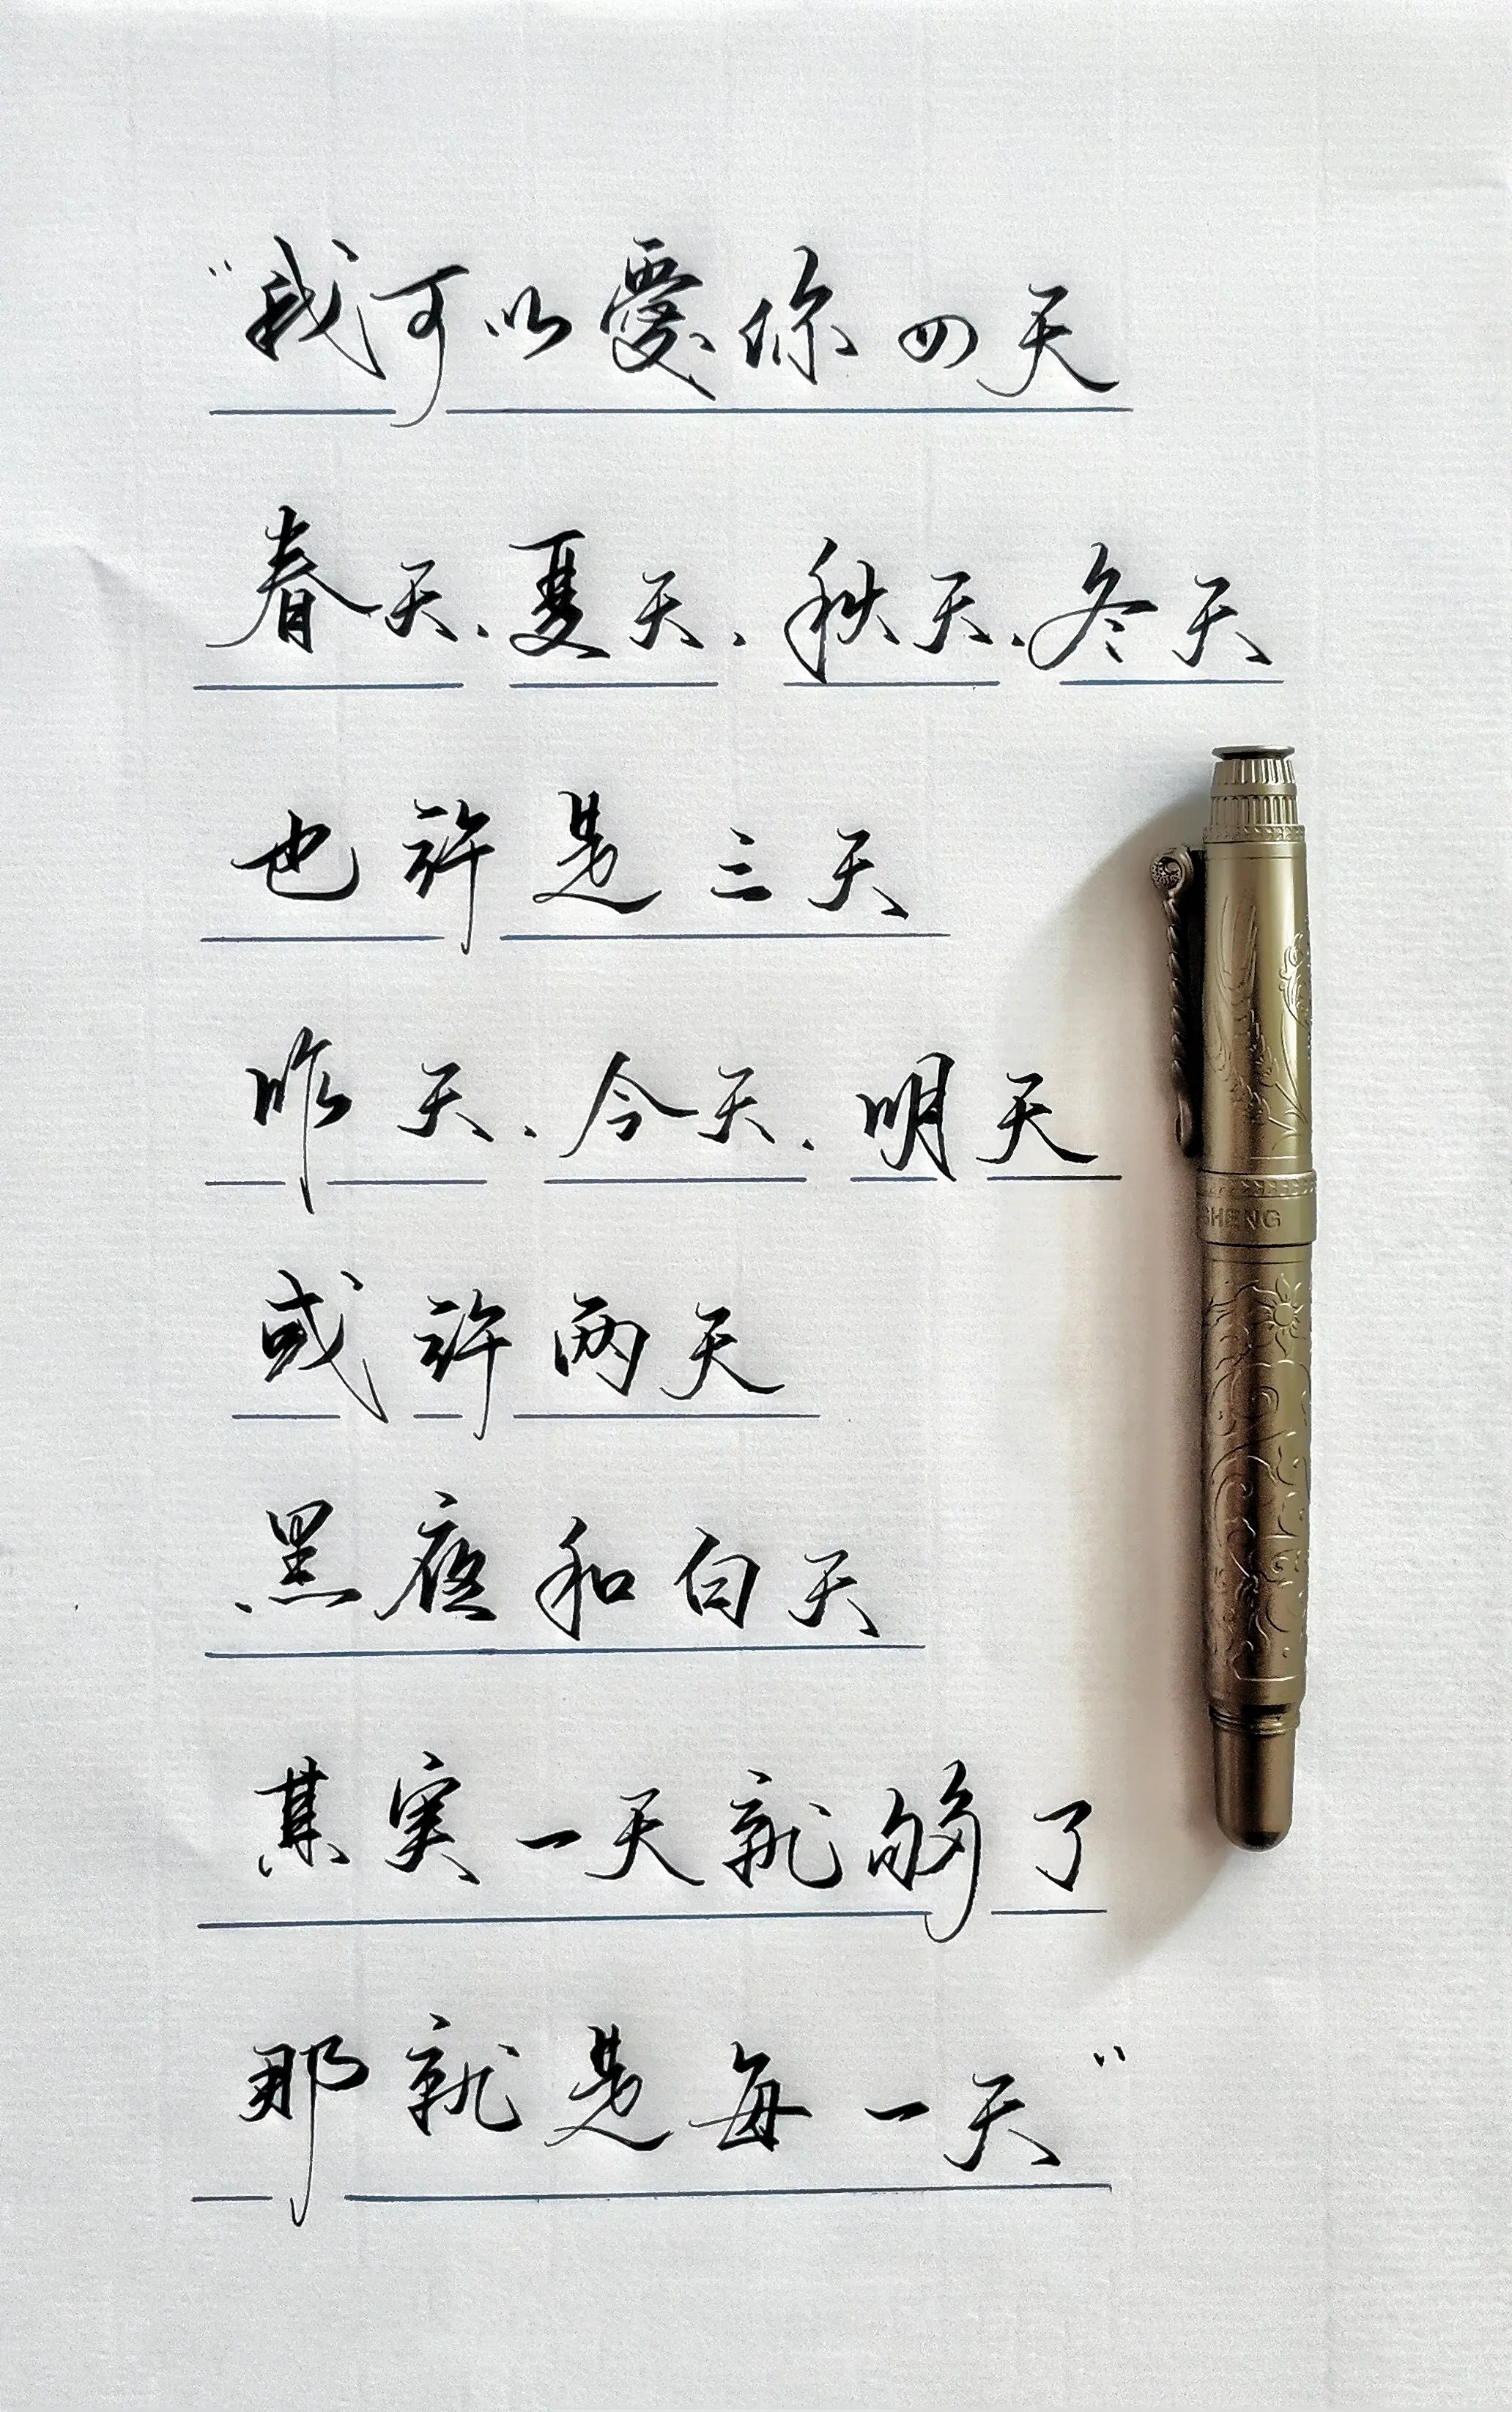 “我可以愛你四天
春天、夏天、秋天、冬天
也許是三天
昨天、今天、明天
或許两天
黑夜和白天
其実一天就够了
那就是每一天”
SHENG